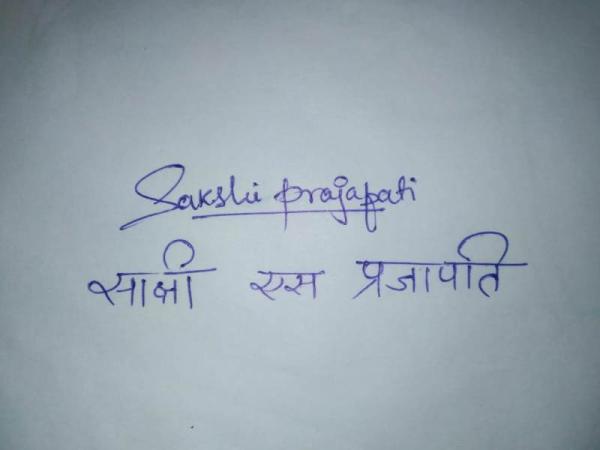 Sakshi prajapati
साक्षी एस प्रजापति